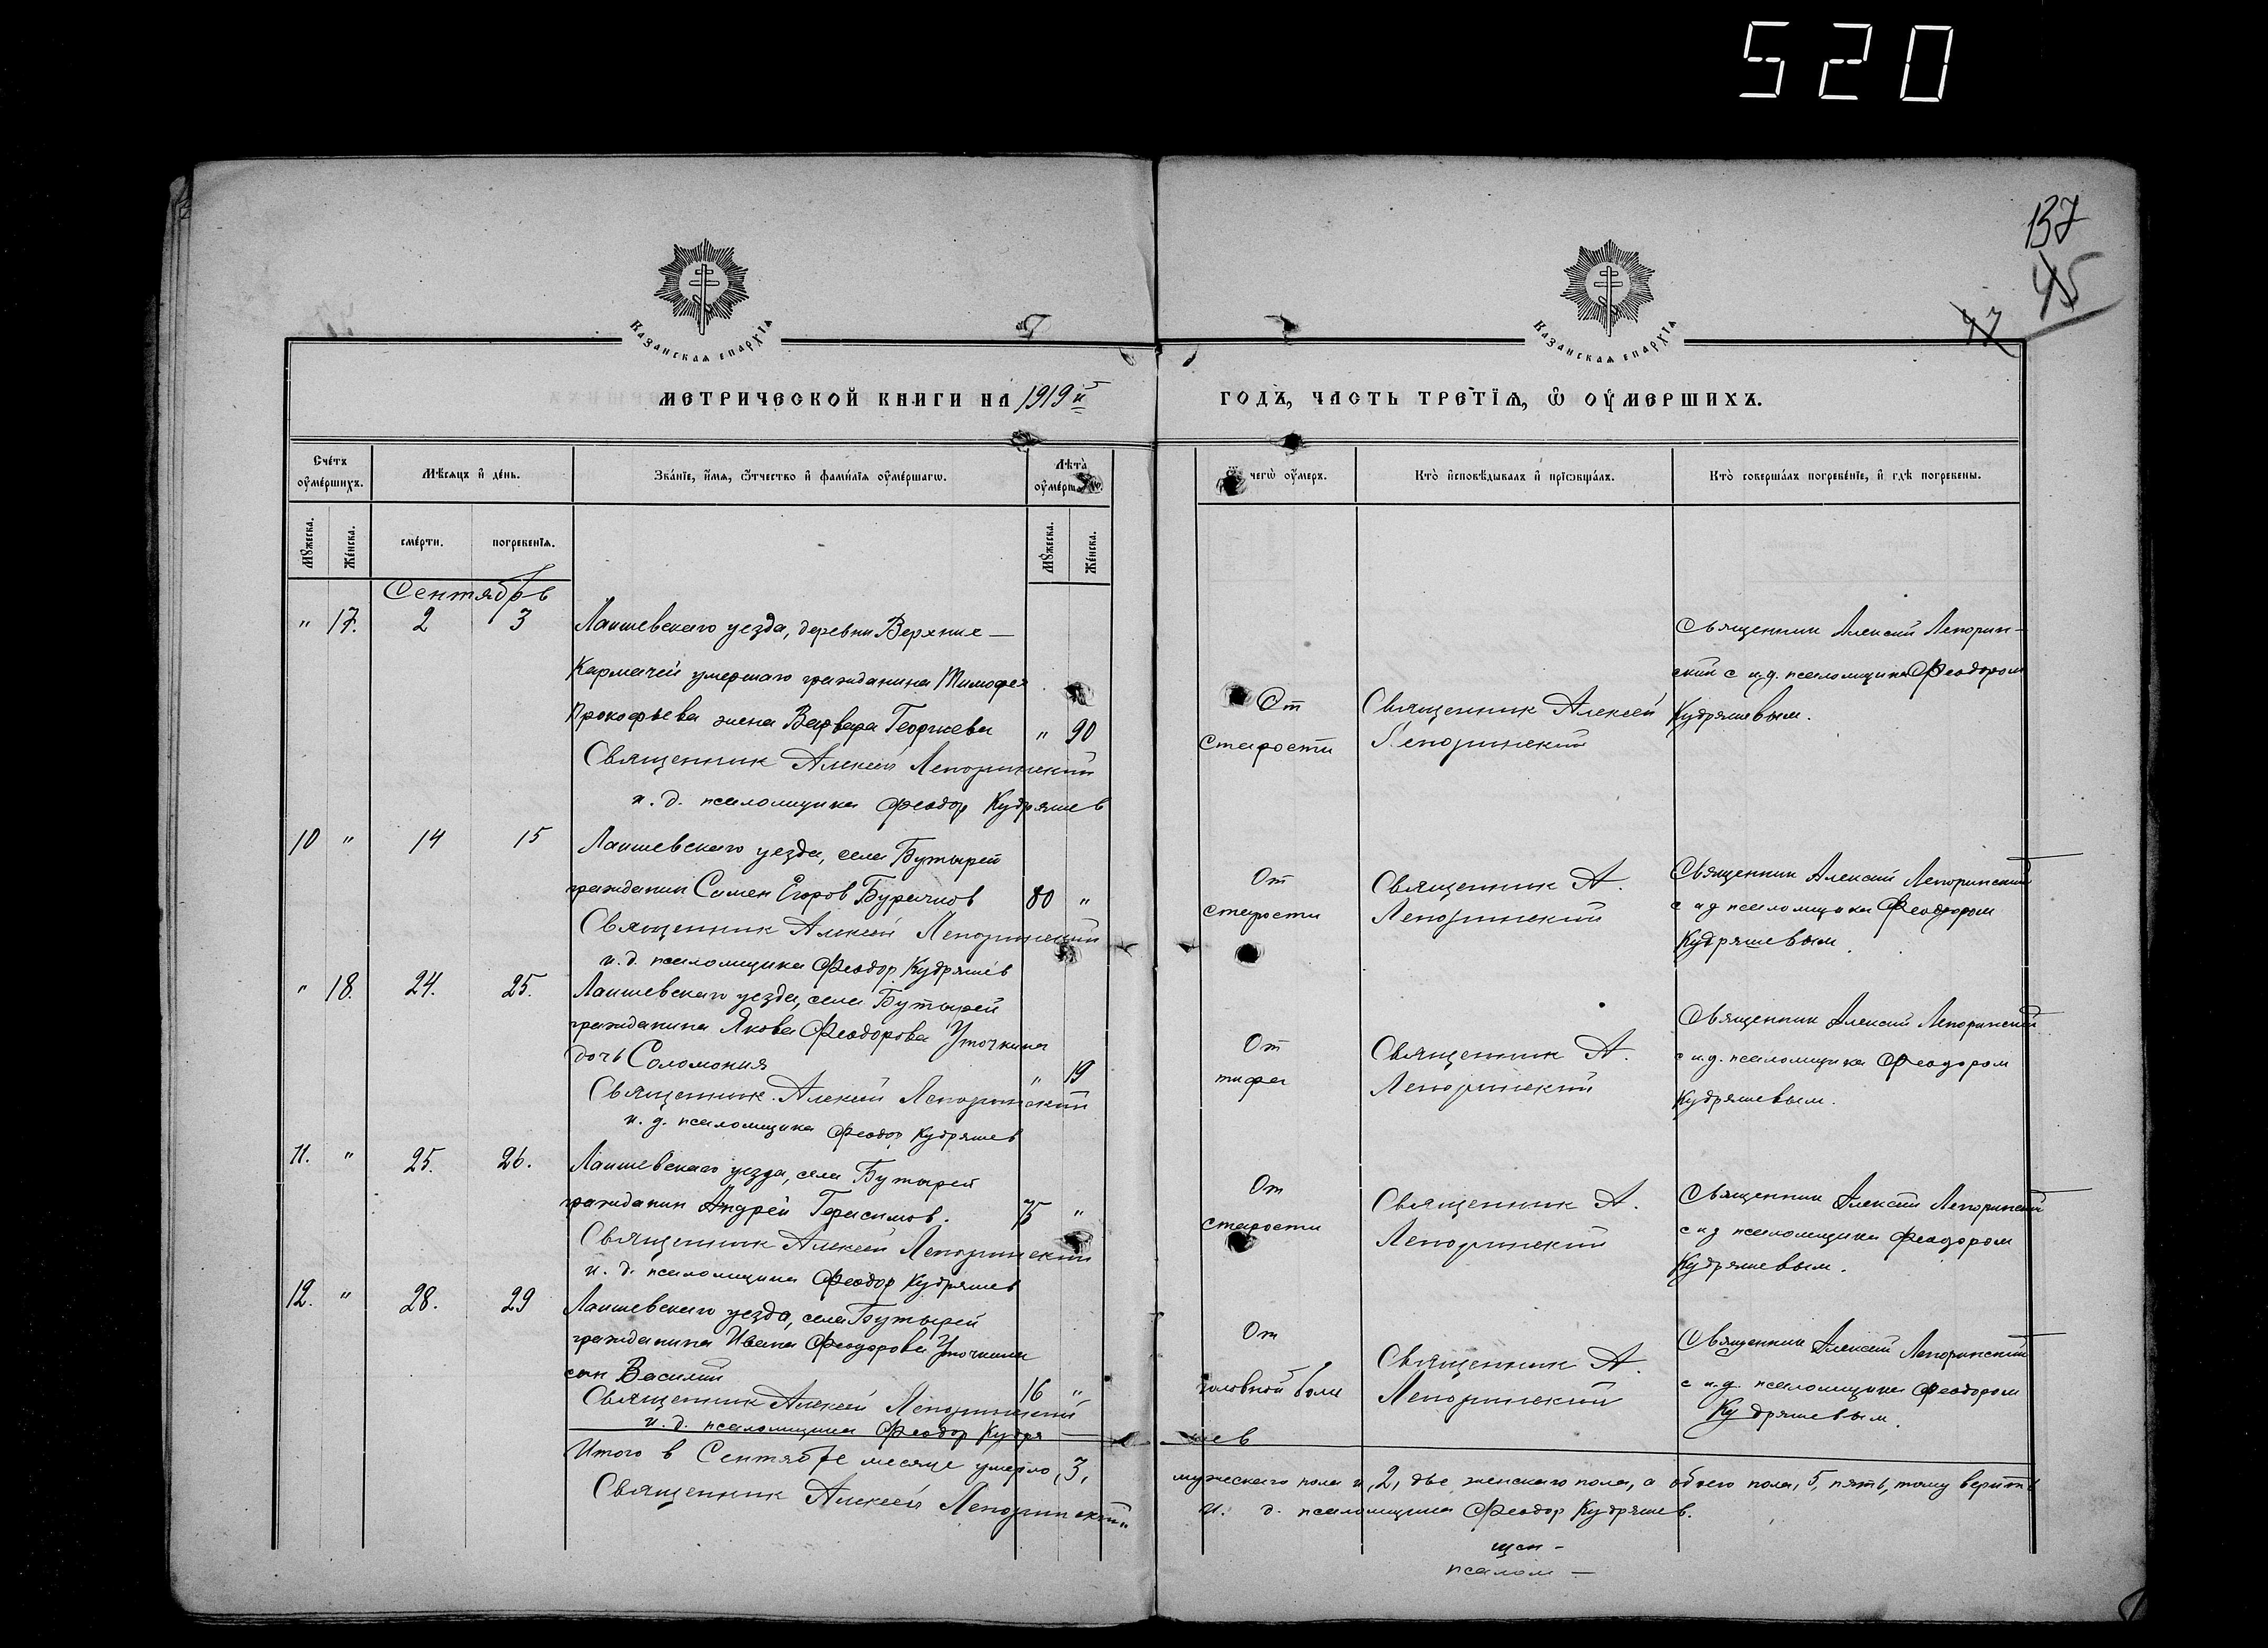 520
137
45
47
Казанская епархїя
Казанская епархїя
МЕТРИЧЕСКОЙ КНИГИ НА 1919 й
ГОДЪ, ЧАСТЬ ТРЕТІѦ, Ѡ ОУМЕРШИХЪ.
Счетъ оумершихъ.
Мѣсяцъ и день.
Званїе, имя, отчество и фамилїя оумершагω.
Лѣта оумерш
чегω оумеръ.
Кто исповѣдывалъ и прїωбщалъ.
Кто совершалъ погребенїе, и гдѣ погребены.
Мужеска.
Женска.
смерти.
погребенїя.
Мужеска.
Женска.
Сентябрь
" 17. 2 3
Лаишевскаго уезда, деревни Верхние —
Кармачей умершаго гражданина Тимофея
Прокофьева жена Варвара Георгиева " 90
Священник Алексей Лепоринский
и. д. псаломщика Феодор Кудряшев
От
старости
Священник Алексей
Лепоринский
Священник Алексий Лепорин-
ский с и.д. псаломщика Феодором
Кудряшевым.
10 " 14 15
Лаишевскаго уезда, села Бутырей
гражданин Симен Егоров 80 "
Священник Алексей Лепоринский
и. д. псаломщика Феодор Кудряшев
От
старости
Священник А.
Лепоринский
Священник Алексий Лепоринский
с и д псаломщика Феодором
Кудряшевым.
" 18. 24. 25.
Лаишевскаго уезда, села Бутырей
гражданина Якова Феодорова Уточкина
дочь Соломония " 19
Священник Алексей Лепоринский
и. д. псаломщика Феодор Кудряшев
От
тифа
Священник А.
Лепоринский
Священник Алексий Лепоринский
с и.д. псаломщика Феодором
Кудряшевым.
11. " 25. 26.
Лаишевскаго уезда, села Бутырей
гражданин Андрей Герасимов. 75 "
Священник Алексей Лепоринский
и. д. псаломщика Феодор Кудряшев
От
старости
Священник А.
Лепоринский
Священник Алексий Лепоринский
с и д псаломщика Феодором
Кудряшевым.
12. " 28. 29
Лаишевскаго уезда, села Бутырей
гражданина Ивана Феодорова Уточкина
сын Василий 16 "
Священник Алексей Лепоринский
и. д. псаломщика Феодор Кудря
шев
От
головной боли
Священник А.
Лепоринский
Священник Алексий Лепоринский
с и.д. псаломщика Феодором
Кудряшевым.
Итого в Сентябре месяце умерло, 3,
мужескаго пола и, 2, две женскаго пола, а обоего пола, 5, пять, тому верить
Священник Алексей Лепоринский
и. д. псаломщика Феодор Кудряшев.
щен —
псалом —